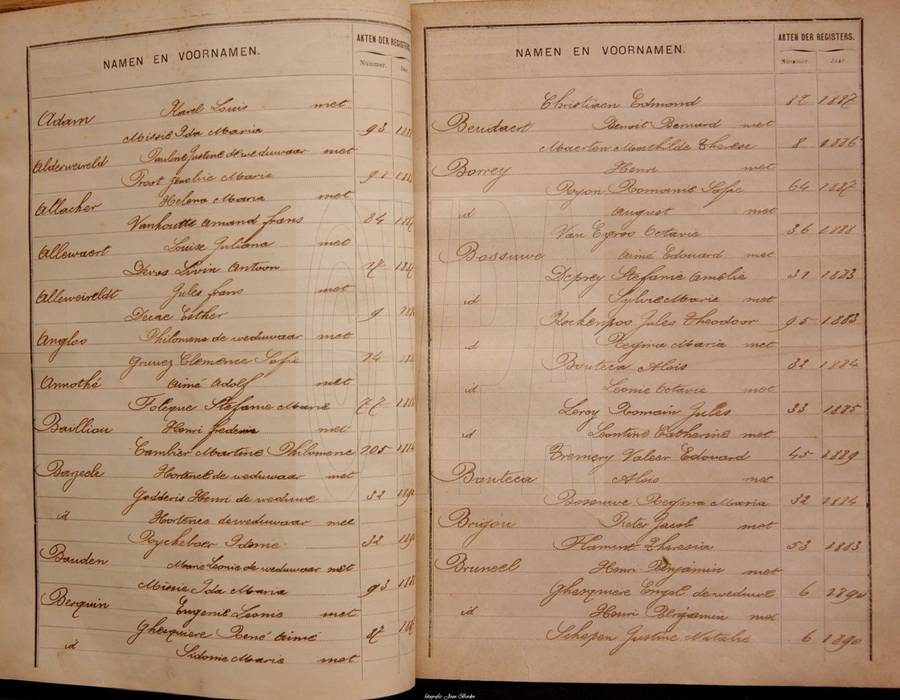 NAMEN EN VOORNAMEN.
AKTEN DER REGISTERS
Nummer. Jaar
Adam Karel Louis met
Missie Ida Maria 93
Alderweireld Pauline Justine de weduwaar met
Proot Maria
Allacher Helena Maria met
Vanhoutte Amand frans 84
Allewaert Louise Juliana met
Devos Livin Antoon 27
Alleweireldt Jules frans met
Decae Esther 9
Anglos Philomena de weduwaar met
Clemence Sofie 24
Annothé Aimé Adolf met
Stefanie Marie 77
Bailliau Henri frederic met
Cambier Martine Philomene 105
Bazeele Hortence de weduwaar met
Godderis Henri de weduwe 32
id Hortence de weduwaar met
Ryckeboer Idonie 32
Bauden Marie Leonie de weduwaar met
Missie Ida Maria 93
Bequin Eugenie Leonie met
Ghesquiere René Aimé 87
id Sidonie Marie met
NAMEN EN VOORNAMEN.
AKTEN DER REGISTERS.
Nummer. Jaar.
Christiaen Edmond 82 1887
Beudaert Benoit Bernard met
Maerten Mathilde Therese 8 1886
Borrey Henri met
Ryon Romanie Sofie 64 1887
id August met
Van Octavie 36 1888
Bossuwe Aimé Edouard met
Deprey Stefanie Amelie 31 1883
id Sylvie Marie met
Jules Theodoor 95 1883
id Regina Maria met
Bouteca Alois 32 1884
id Leonie Octavie met
Leroy Romain Jules 33 1885
id Leontine Catherine met
Tremery Valeer Edouard 45 1889
Bouteca Alois met
Bossuwe Regina Maria 32 1884
Brigou Pieter Jacob met
Flament Theresia 53 1883
Bruneel Henri Benjamin met
Ghesquiere Engel de weduwe 6 1890
id Henri Benjamin met
Schepen Justine Natalie 6 1890